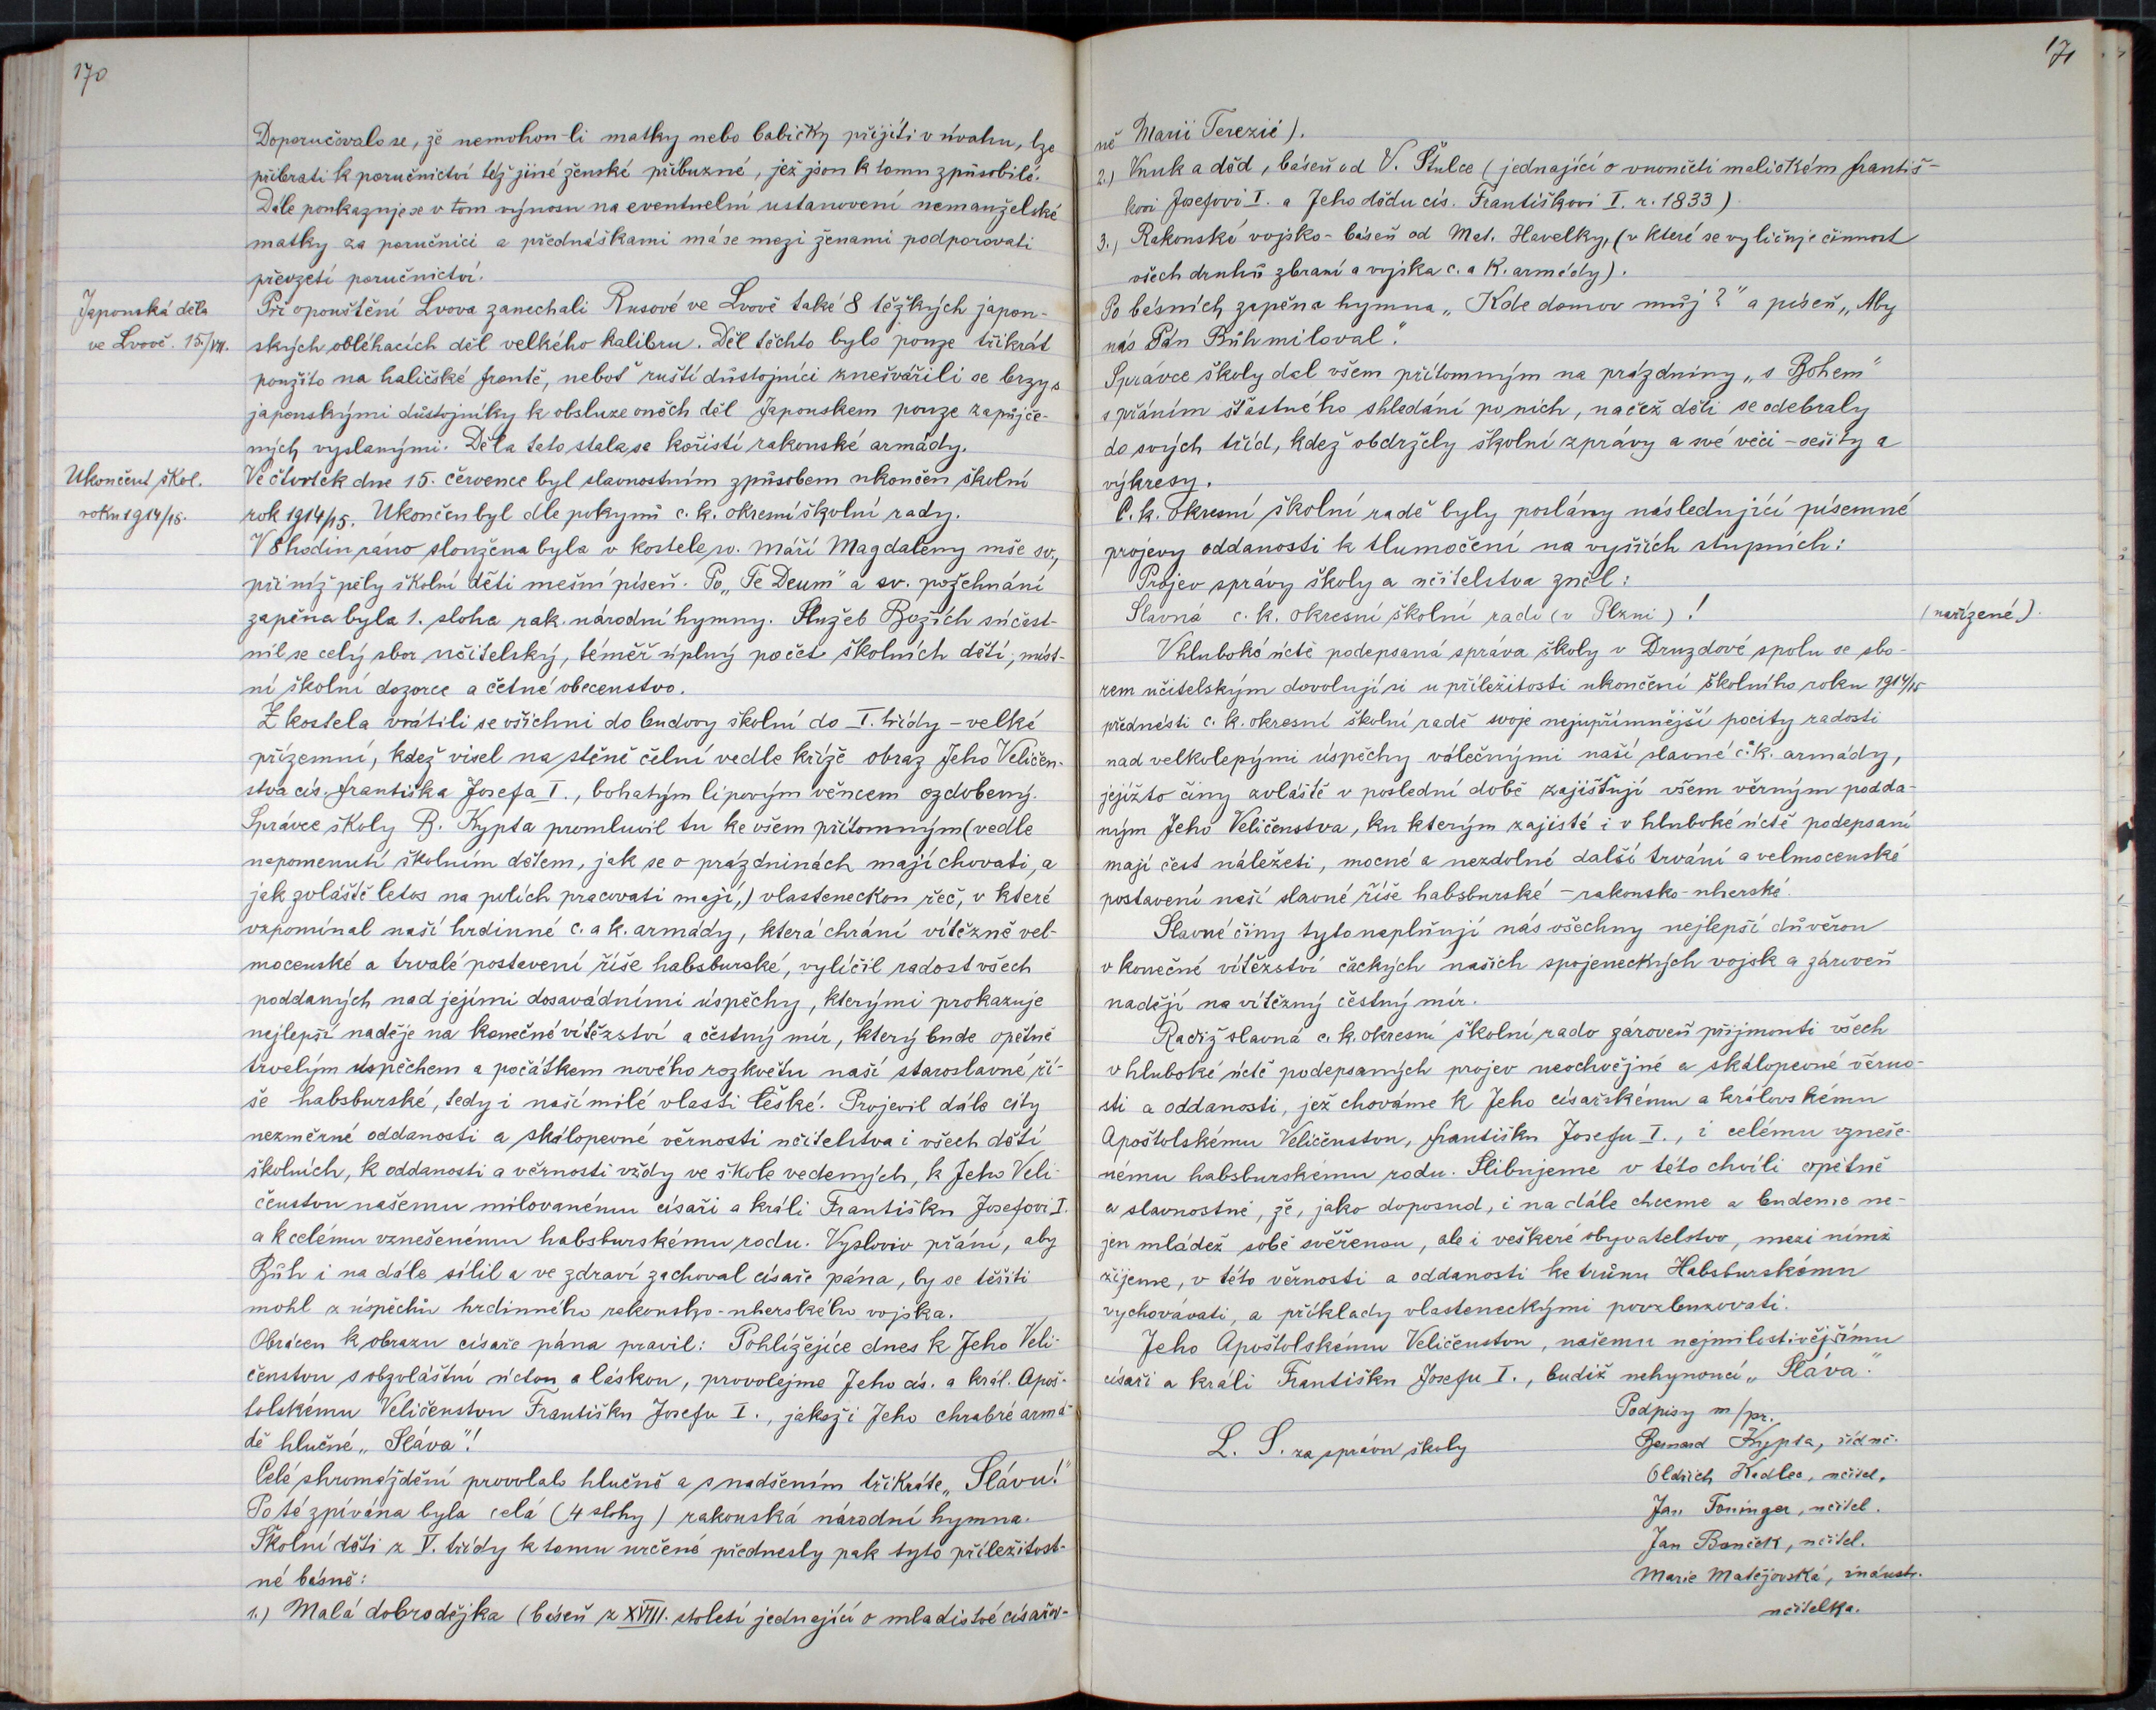 170
Doporučovalo se, že nemohou-li matky nebo babičky přijíti v úvahu, lze
přibrati k poručnictví též jiné ženské příbuzné, jež jsou k tomu způsobilé.
Dále poukazuje se v tom výnosu na eventuelní ustanovení nemanželské
matky za poručnici a přednáškami má se mezi ženami podporovati
převzetí poručnictví.
Japonská děla
ve Lvově. 15./VII.
Při opouštění Lvova zanechali Rusové ve Lvově také 8 těžkých japon-
ských obléhacích děl velkého kalibru. Děl těchto bylo pouze třikrát
použito na haličské frontě, neboť ruští důstojníci znešvářili se brzy s
japonskými důstojníky k obsluze oněch děl Japonskem pouze zapůjče-
ných vyslanými. Děla tato stala se kořistí rakouské armády.
Ukončení škol.
roku 1914/15.
Ve čtvrtek dne 15. července byl slavnostním způsobem ukončen školní
rok 1914/15. Ukončen byl dle pokynů c. k. okresní školní rady.
V 8 hodin ráno sloužena byla v kostele sv. Máří Magdaleny mše sv.,
při níž pěly školní děti mešní píseň. Po „Te Deum" a sv. požehnání
zapěna byla 1. sloha rak. národní hymny. Služeb Božích súčast-
nil se celý sbor učitelský, téměř úplný počet školních dětí, míst-
ní školní dozorce a četné obecenstvo.
Z kostela vrátili se všichni do budovy školní do I. třídy – velké
přízemní, kdež visel na stěně čelní vedle kříže obraz Jeho Veličen-
stva cís. Františka Josefa I., bohatým lipovým věncem ozdobený.
Správce školy B. Kypta promluvil tu ke všem přítomným (vedle
napomenutí školním dětem, jak se o prázdninách mají chovati, a
jak zvláště letos na polích pracovati mají,) vlasteneckou řeč, v které
vzpomínal naší hrdinné c. a k. armády, která chrání vítězně vel-
mocenské a trvalé postavení říše habsburské, vylíčil radost všech
poddaných nad jejími dosavádními úspěchy, kterými prokazuje
nejlepší naděje na konečné vítězství a čestný mír, který bude opětně
trvalým úspěchem a počátkem nového rozkvětu naší staroslavné ří-
še habsburské, tedy i naší milé vlasti české. Projevil dále city
nezměrné oddanosti a skálopevné věrnosti učitelstva i všech dětí
školních, k oddanosti a věrnosti vždy ve škole vedených, k Jeho Veli-
čenstvu našemu milovanému císaři a králi Františku Josefovi I.
a k celému vznešenému habsburskému rodu. Vysloviv přání, aby
Bůh i na dále sílil a ve zdraví zachoval císaře pána, by se těšiti
mohl z úspěchů hrdinného rakousko-uherského vojska.
Obrácen k obrazu císaře pána pravil: Pohlížejíce dnes k Jeho Veli-
čenstvu s obzvláštní úctou a láskou, provolejme Jeho cís. a král. Apoš-
tolskému Veličenstvu Františku Josefu I., jakož i Jeho chrabré armá-
dě hlučné „Sláva"!
Celé shromáždění provolalo hlučně a s nadšením třikráte „Slávu!"
Poté zpívána byla celá (4 slohy) rakouská národní hymna.
Školní děti z V. třídy k tomu určené přednesly pak tyto příležitost-
né básně:
1.) Malá dobrodějka (báseň z XVIII. století jednající o mladistvé císařov-
171
ně Marii Terezii).
2.) Vnuk a děd, báseň od V. Štulce (jednající o vnoučeti maličkém Františ-
kovi Josefovi I. a Jeho dědu cís. Františkovi I. r. 1833)
3.) Rakouské vojsko – báseň od Mat. Havelky, (v které se vyličuje činnost
všech druhů zbraní a vojska c. a k. armády).
Po básních zapěna hymna „Kde domov můj?" a píseň „Aby
nás Pán Bůh miloval".
Správce školy dal všem přítomným na prázdniny „s Bohem"
s přáním šťastného shledání po nich, načež děti se odebraly
do svých tříd, kdež obdržely školní zprávy a své věci – sešity a
výkresy.
C. k. okresní školní radě byly poslány následující písemné
projevy oddanosti k tlumočení na vyšších stupních:
Projev správy školy a učitelstva zněl:
Slavná c. k. okresní školní rado (v Plzni)!
(nařízené).
V hluboké úctě podepsaná správa školy v Druzdově spolu se sbo-
rem učitelským dovolují si u příležitosti ukončení školního roku 1914/15
přednésti c. k. okresní školní radě svoje nejupřímnější pocity radosti
nad velkolepými úspěchy válečnými naší slavné c. a k. armády,
jejížto činy zvláště v poslední době zajišťují všem věrným podda-
ným Jeho Veličenstva, ku kterým zajisté i v hluboké úctě podepsaní
mají čest náležeti, mocné a nezdolné další trvání a velmocenské
postavení naší slavné říše habsburské – rakousko-uherské.
Slavné činy tyto naplňují nás všechny nejlepší důvěrou
v konečné vítězství čackých našich spojeneckých vojsk a zároveň
nadějí na vítězný čestný mír.
Račiž slavná c. k. okresní školní rado zároveň přijmouti všech
v hluboké úctě podepsaných projev neochvějné a skálopevné věrno-
sti a oddanosti, jež chováme k Jeho císařskému a královskému
Apoštolskému Veličenstvu, Františku Josefu I., i celému vzneše-
nému habsburskému rodu. Slibujeme v této chvíli opětně
a slavnostně, že, jako doposud, i na dále chceme a budeme ne-
jen mládež sobě svěřenou, ale i veškeré obyvatelstvo, mezi nímž
žijeme, v této věrnosti a oddanosti ke trůnu Habsburskému
vychovávati, a příklady vlasteneckými povzbuzovati.
Jeho Apoštolskému Veličenstvu, našemu nejmilostivějšímu
císaři a králi Františku Josefu I., budiž nehynoucí „Sláva".
Podpisy m/pr.
L. S. za správu školy
Bernard Kypta, říd. uč.
Oldřich Kadlec, učitel.
Jan Toninger, učitel.
Jan Baněčk, učitel.
Marie Matějovská, industr.
učitelka.